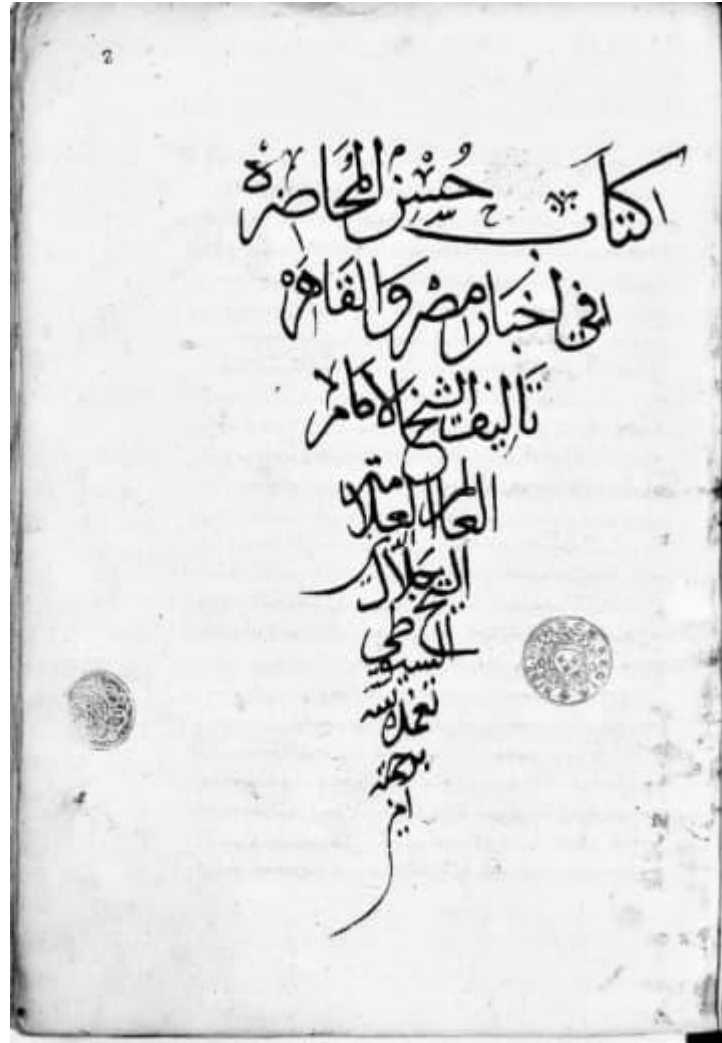 2
كتاب حُسْن المُحَاضرة
في اخبار مصر وَالقَاهرة
تَأليف الشيخ الامام
العالم العلامة
الشيخ جلال الدين
السيوطي
تغمده الله
برحمته
امين